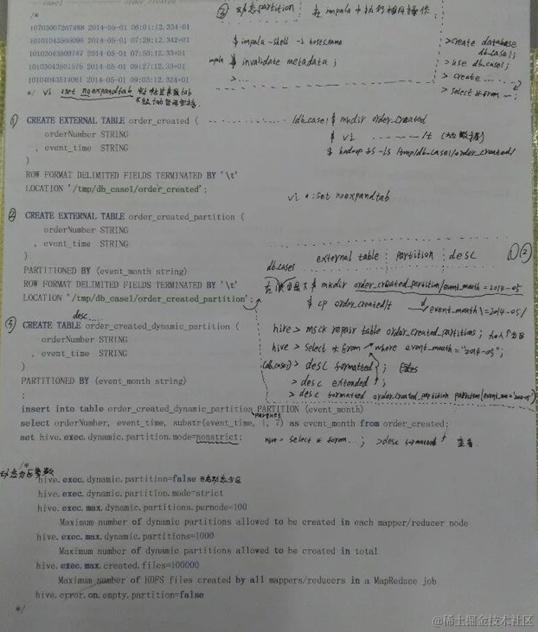 /*
10703007267488 2014-05-01 06:01:12.334+01
10101043505096 2014-05-01 07:28:12.342+01
10103043509747 2014-05-01 07:50:12.33+01
10103043501575 2014-05-01 09:27:12.33+01
10104043514061 2014-05-01 09:03:12.324+01
*/ vi :set noexpandtab
② 动态partition 在 impala 中执行相同操作
$ impala-shell -i hostname
impala $ invalidate metadata ;
>...
>create database db_case1;
>use db_case1;
>create ......;
>select * from —;
① CREATE EXTERNAL TABLE order_created (
orderNumber STRING
, event_time STRING
)
ROW FORMAT DELIMITED FIELDS TERMINATED BY '\t'
LOCATION '/tmp/db_case1/order_created';
/db_case1 $ mkdir order_created
$ vi
$ hadoop fs -ls /tmp/db_case1/order_created/
vi :set noexpandtab
② CREATE EXTERNAL TABLE order_created_partition (
orderNumber STRING
, event_time STRING
)
PARTITIONED BY (event_month string)
ROW FORMAT DELIMITED FIELDS TERMINATED BY '\t'
LOCATION '/tmp/db_case1/order_created_partition';
external table partition desc
db_case1
$ mkdir order_created_partition/event_month=2014-05
$ cp order_created/t /event_month\=2014-05/
hive > msck repair table order_created_partitions;
hive > select * from where event_month="2014-05";
(db_case1) > desc formatted t;
> desc extended t;
> desc formatted order_created_partition partition
desc
③ CREATE TABLE order_created_dynamic_partition (
orderNumber STRING
, event_time STRING
)
PARTITIONED BY (event_month string)
;
insert into table order_created_dynamic_partition PARTITION (event_month)
select orderNumber, event_time, substr(event_time, 1, 7) as event_month from order_created;
set hive.exec.dynamic.partition.mode=nonstrict;
hive > select * from...; >desc formatted t 查看
/*
动态分区参数
hive.exec.dynamic.partition=false
hive.exec.dynamic.partition.mode=strict
hive.exec.max.dynamic.partitions.pernode=100
Maximum number of dynamic partitions allowed to be created in each mapper/reducer node
hive.exec.max.dynamic.partitions=1000
Maximum number of dynamic partitions allowed to be created in total
hive.exec.max.created.files=100000
Maximum number of HDFS files created by all mappers/reducers in a MapReduce job
hive.error.on.empty.partition=false
*/
@稀土掘金技术社区